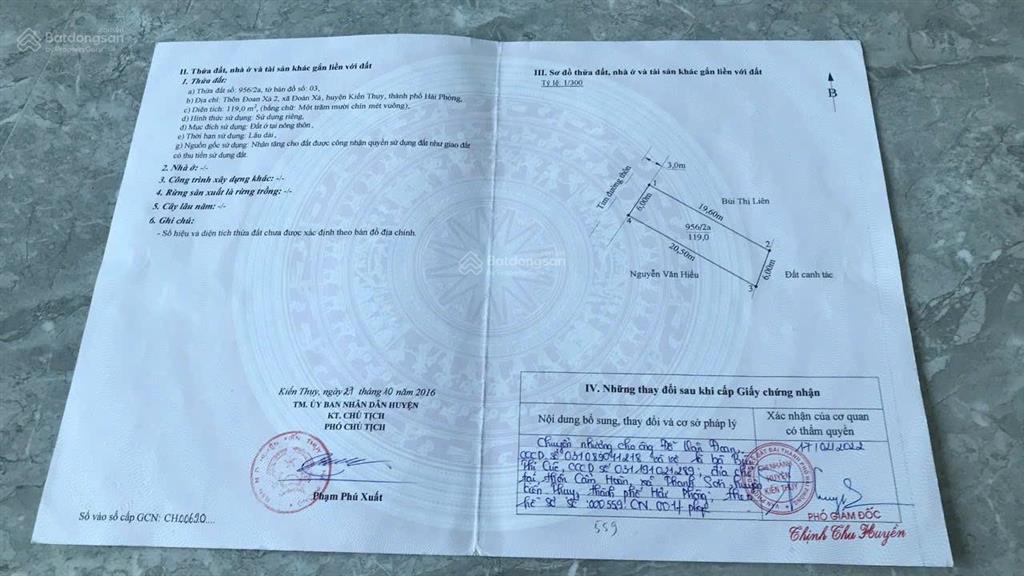 Batdongsan
by PropertyGuru
II. Thửa đất, nhà ở và tài sản khác gắn liền với đất
1. Thửa đất:
a) Thửa đất số: 956/2a, tờ bản đồ số: 03,
b) Địa chỉ: Thôn Đoan Xá 2, xã Đoàn Xá, huyện Kiến Thụy, thành phố Hải Phòng,
c) Diện tích: 119,0 m², (bằng chữ: Một trăm mười chín mét vuông),
d) Hình thức sử dụng: Sử dụng riêng,
đ) Mục đích sử dụng: Đất ở tại nông thôn,
e) Thời hạn sử dụng: Lâu dài,
g) Nguồn gốc sử dụng: Nhận tặng cho đất được công nhận quyền sử dụng đất như giao đất
có thu tiền sử dụng đất.
2. Nhà ở: -/-
3. Công trình xây dựng khác: -/-
4. Rừng sản xuất là rừng trồng: -/-
5. Cây lâu năm: -/-
6. Ghi chú:
- Số hiệu và diện tích thửa đất chưa được xác định theo bản đồ địa chính.
Kiến Thụy, ngày 27 tháng 10 năm 2016
TM. ỦY BAN NHÂN DÂN HUYỆN
KT. CHỦ TỊCH
PHÓ CHỦ TỊCH
Phạm Phú Xuất
Số vào sổ cấp GCN: CH00620
III. Sơ đồ thửa đất, nhà ở và tài sản khác gắn liền với đất
Tỷ lệ: 1/300
B
3,0m
Tim đường thôn
1
6,00m
19,60m
Bùi Thị Liên
4
956/2a
119,0
2
20,50m
6,00m
Nguyễn Văn Hiếu
3
Đất canh tác
Batdongsan
by PropertyGuru
IV. Những thay đổi sau khi cấp Giấy chứng nhận
Nội dung bổ sung, thay đổi và cơ sở pháp lý
Xác nhận của cơ quan
có thẩm quyền
Chuyển nhượng cho ông
CCCD số 031089011218 và vợ là bà
CCCD số 031191021289, địa chỉ
tại thôn Cẩm Hoàn, xã Thanh Sơn, huyện
Kiến Thụy, thành phố Hải Phòng, theo
hồ sơ số 000559.CN.001
17/02/2022
CHI NHÁNH
HUYỆN
KIẾN THỤY
PHÓ GIÁM ĐỐC
Thịnh Thu Huyền
559